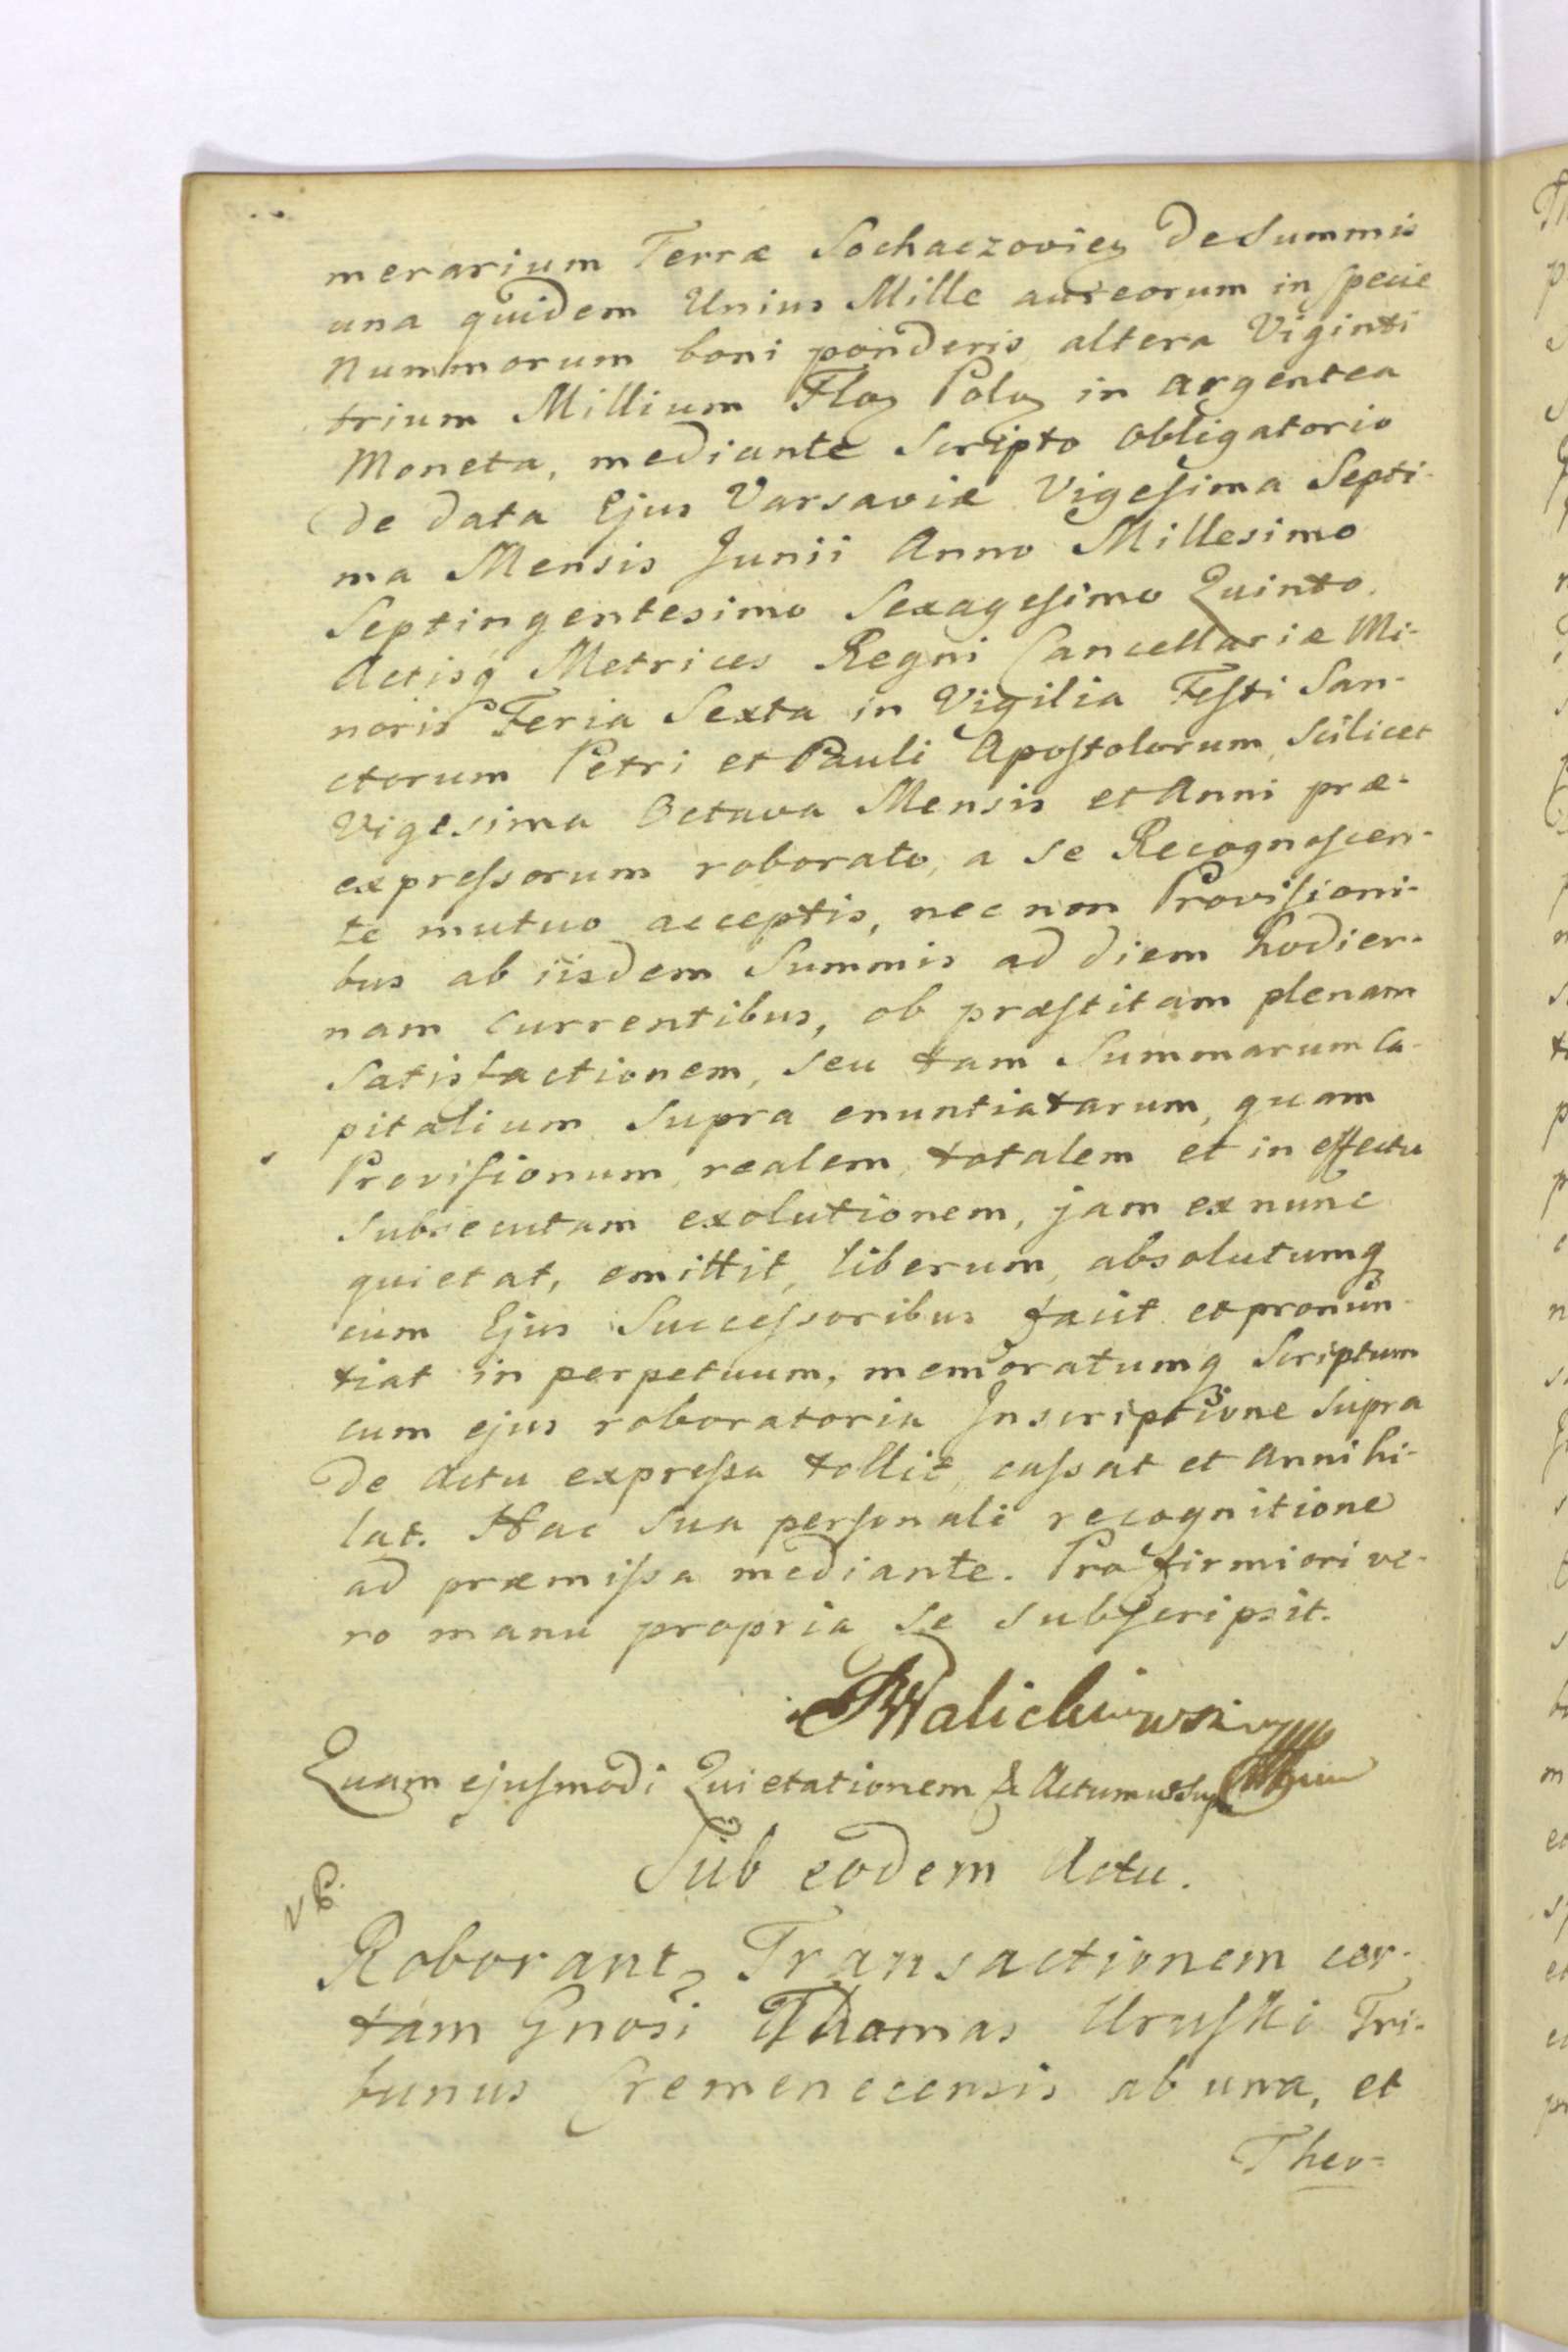 merarium Terræ Sochaczovien de Summis
una quidem Unius Mille aureorum in specie
Nummorum boni ponderis altera Viginti
trium Millium Flor Polor in argentea
Moneta, mediante Scripto obligatorio
de data Ejus Varsaviæ Vigesima Septi-
ma Mensis Junii Anno Millesimo
Septingentesimo Sexagesimo Quinto.
Actisq Metrices Regni Cancellariæ Mi-
noris Feria Sexta in Vigilia Festi San-
ctorum Petri et Pauli Apostolorum, scilicet
Vigesima Octava Mensis et Anni præ-
expressorum roborato, a se Recognoscen-
te mutuo acceptis, nec non Provisioni-
bus ab iisdem Summis ad diem hodier-
nam currentibus, ob præstitam plenam
Satisfactionem, seu tam Summarum Ca-
pitalium supra enuntiatarum, quam
Provisionum, realem, totalem et in effectu
subsecutam exolutionem, jam ex nunc
quietat, emittit, liberum, absolutumq
cum Ejus Successoribus facit et pronun-
tiat in perpetuum, memoratumq Scriptum
cum ejus roboratoria Inscriptione supra
de actu expressa tollit, cassat et annihi-
lat. Hac sua personali recognitione
ad præmissa mediante. Pro firmiori ve-
ro manu propria se subscripsit.
Walichiwski
Quam ejusmodi Quietationem & Actum ut sup
Sub eodem Actu.
Roborant Transactionem cer-
tam Gnosi Thomas Uruski Tri-
bunus Cremenecensis ab una, et
Theo-